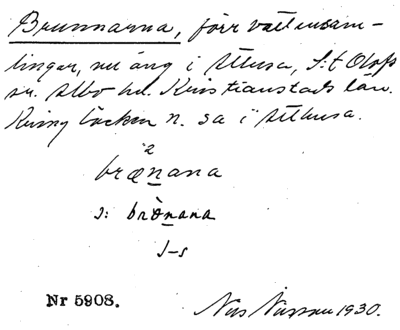 Brunnarna, förr vattensam-
lingar, nu äng i Allusa, S:t Olofs
sn. Albo hd. Kristianstads län.
Kring bäcken n. sa i Allusa.
2
bræṉana
ɔ: brø̀ṉana
J-s
Nr 5908.
Nils Nilsson 1930.